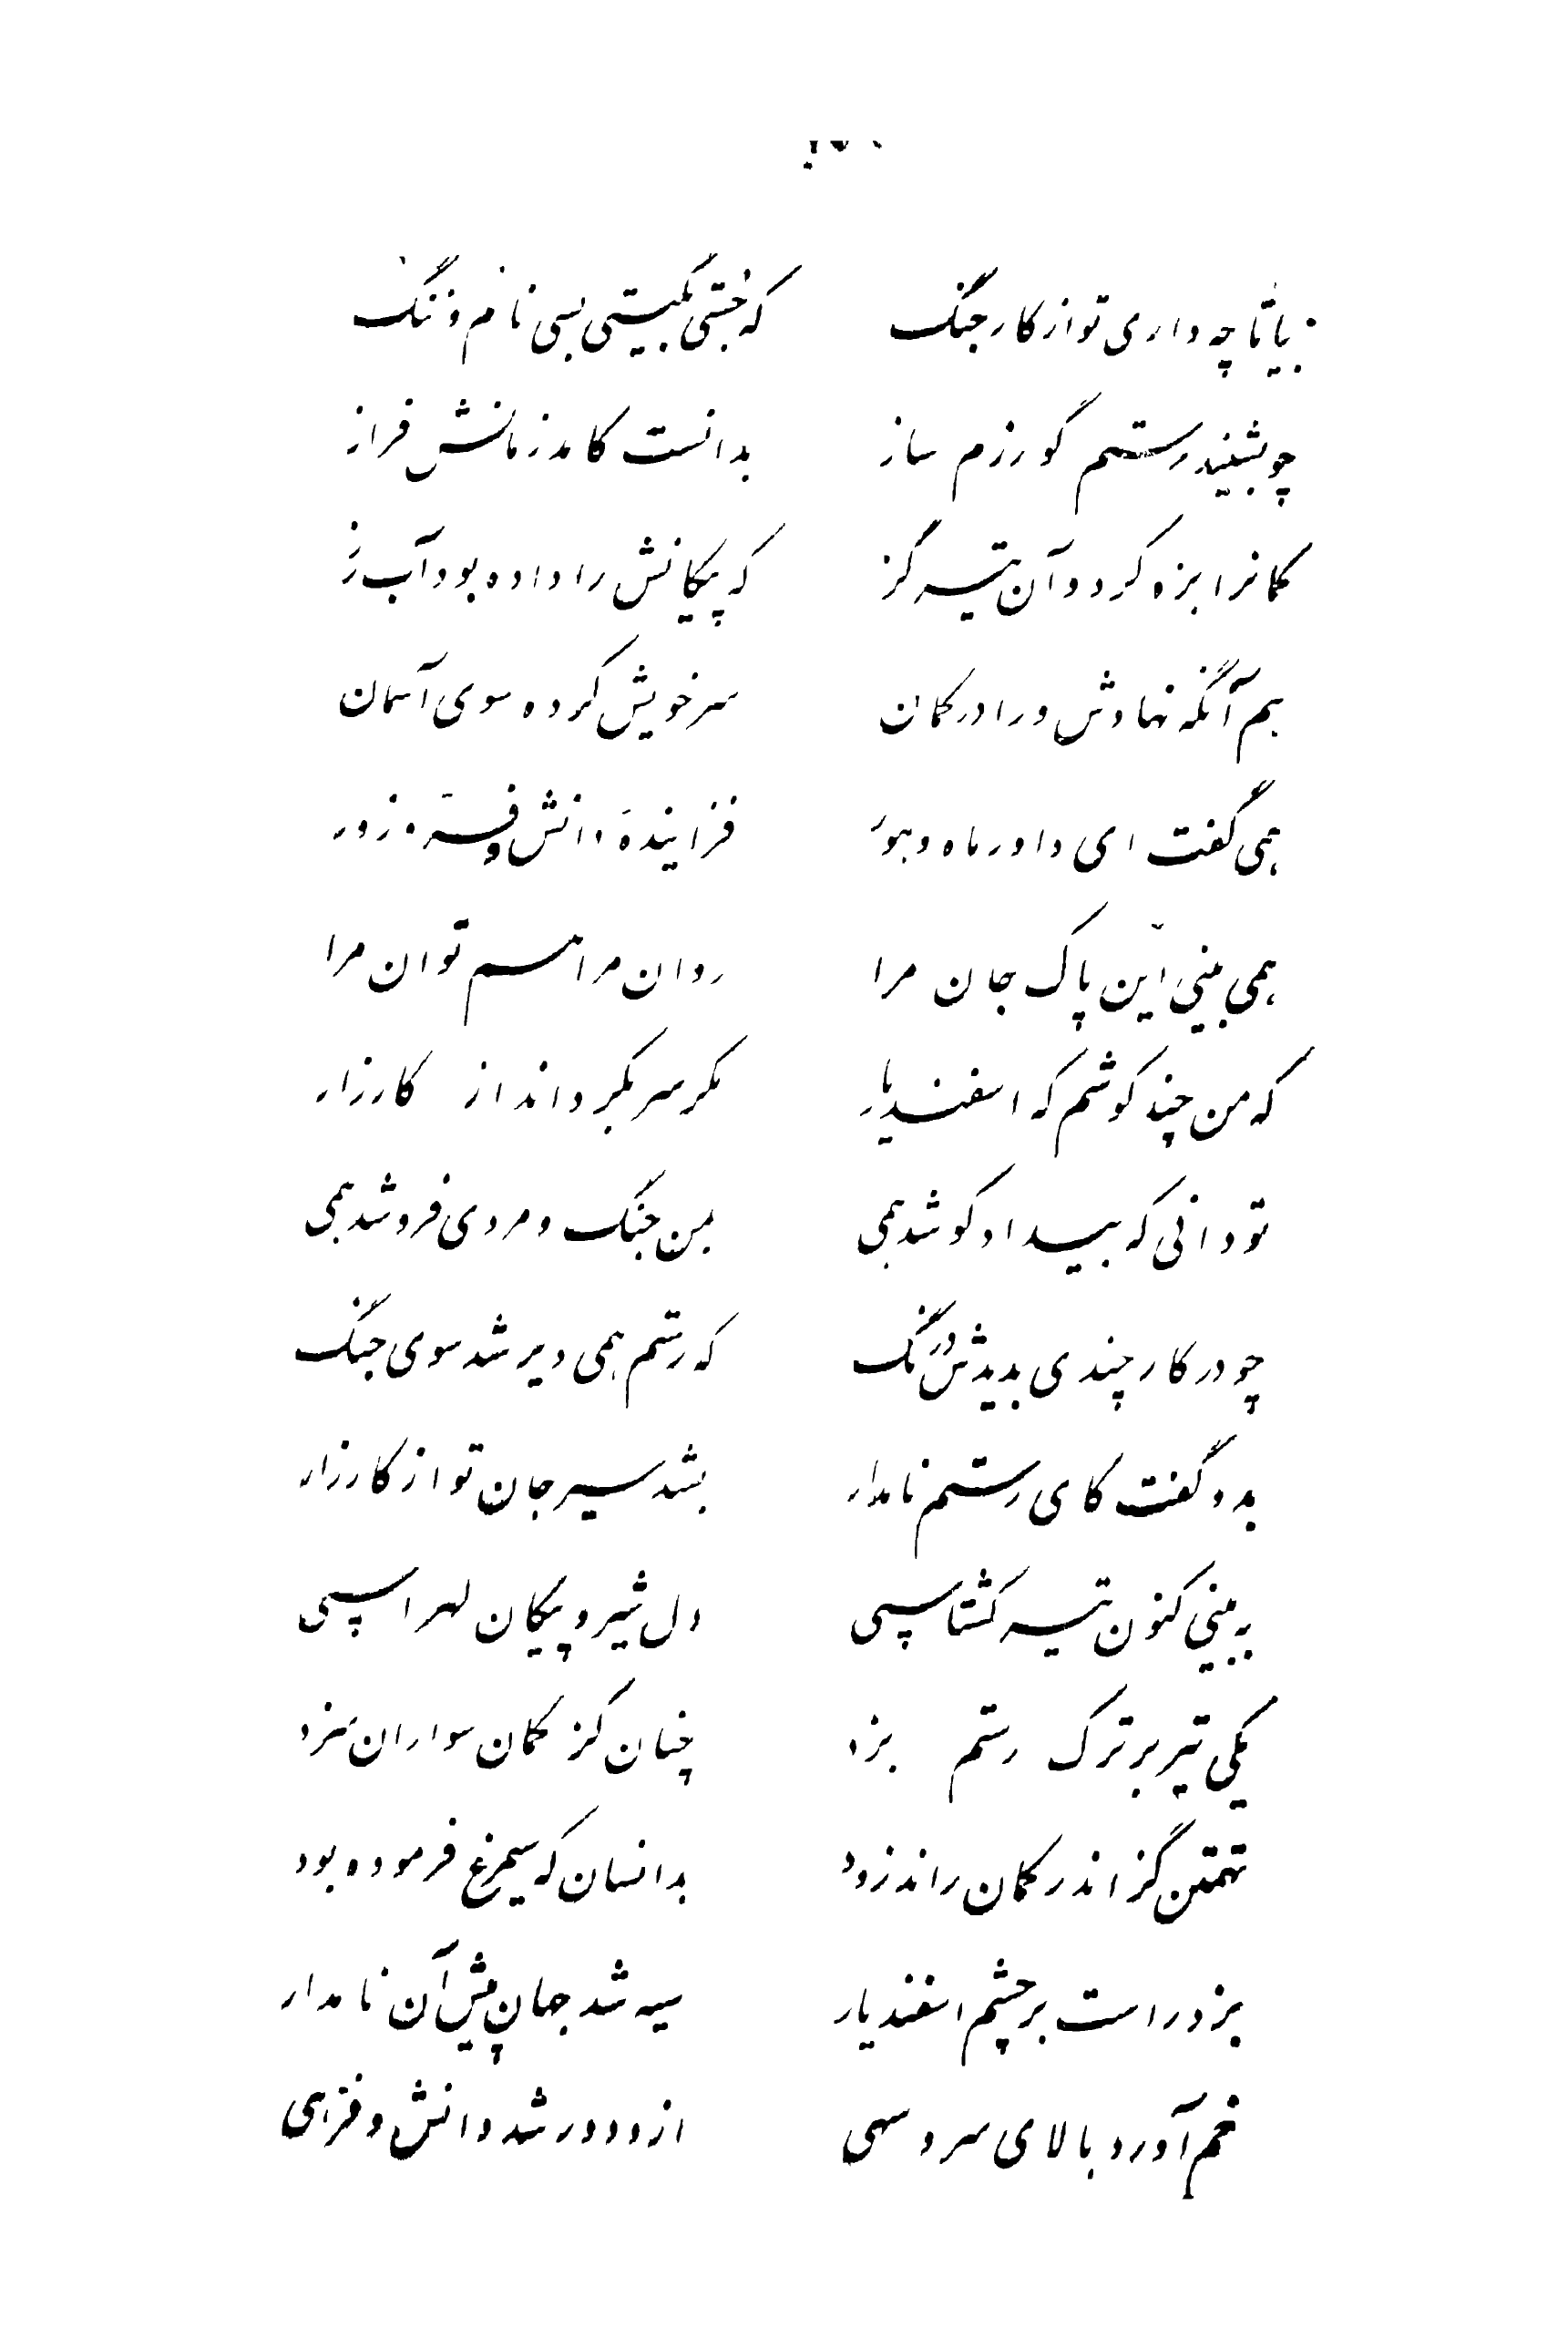 بیا تا چه داری تو از کار جنگ که جستی بگیتی بسی نام و ننگ
چو بشنید رستم گو رزم ساز بدانست کامد زمانش فراز
کمانرا بزه کرد و آن تیر گز که پیکانش را داده بود آب رز
هم آنگه نهادش ورا در کمان سر خویش کرده سوی آسمان
همی گفت ای داور ماه و هور فزایندهٔ دانش و فر و زور
همی بینی این پاک جان مرا روان مرا هم توان مرا
که من چند کوشم که اسفندیار مگر سر بگرداند از کارزار
تو دانی که بیداد کوشد همی بمن جنگ و مردی فروشد همی
چو در کار چندی بدیدش درنگ که رستم همی دیر شد سوی جنگ
بدو گفت کای رستم نامدار بشد سیر جان تو از کارزار
به بینی کنون تیر گشتاسپی دل شیر و پیکان لهراسپی
یکی تیر بر ترک رستم بزد چنان کز کمان سواران سزد
تهمتن گز اندر کمان راند زود بدانسان که سیمرغ فرموده بود
بزد راست بر چشم اسفندیار سیه شد جهان پیش آن نامدار
خم آورد بالای سرو سهی ازو دور شد دانش و فرهی